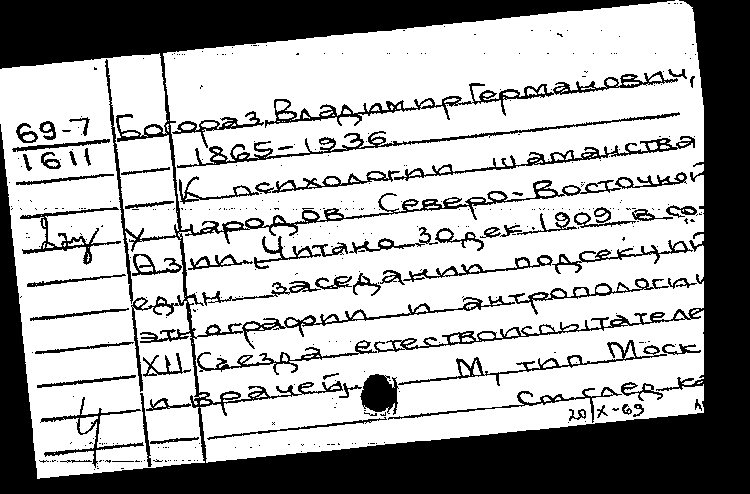 Богораз, Владимир Германович,
69-7
1611
1865-1936.
К психологии шаманства
у народов Северо-Восточной
Азии. Читано 30 дек. 1909 в со-
един. заседании подсекций
этнографии и антропологии
XII Съезда естествоиспытателе
и врачей. М., тип. Моск
См. след. ка
20/X-69